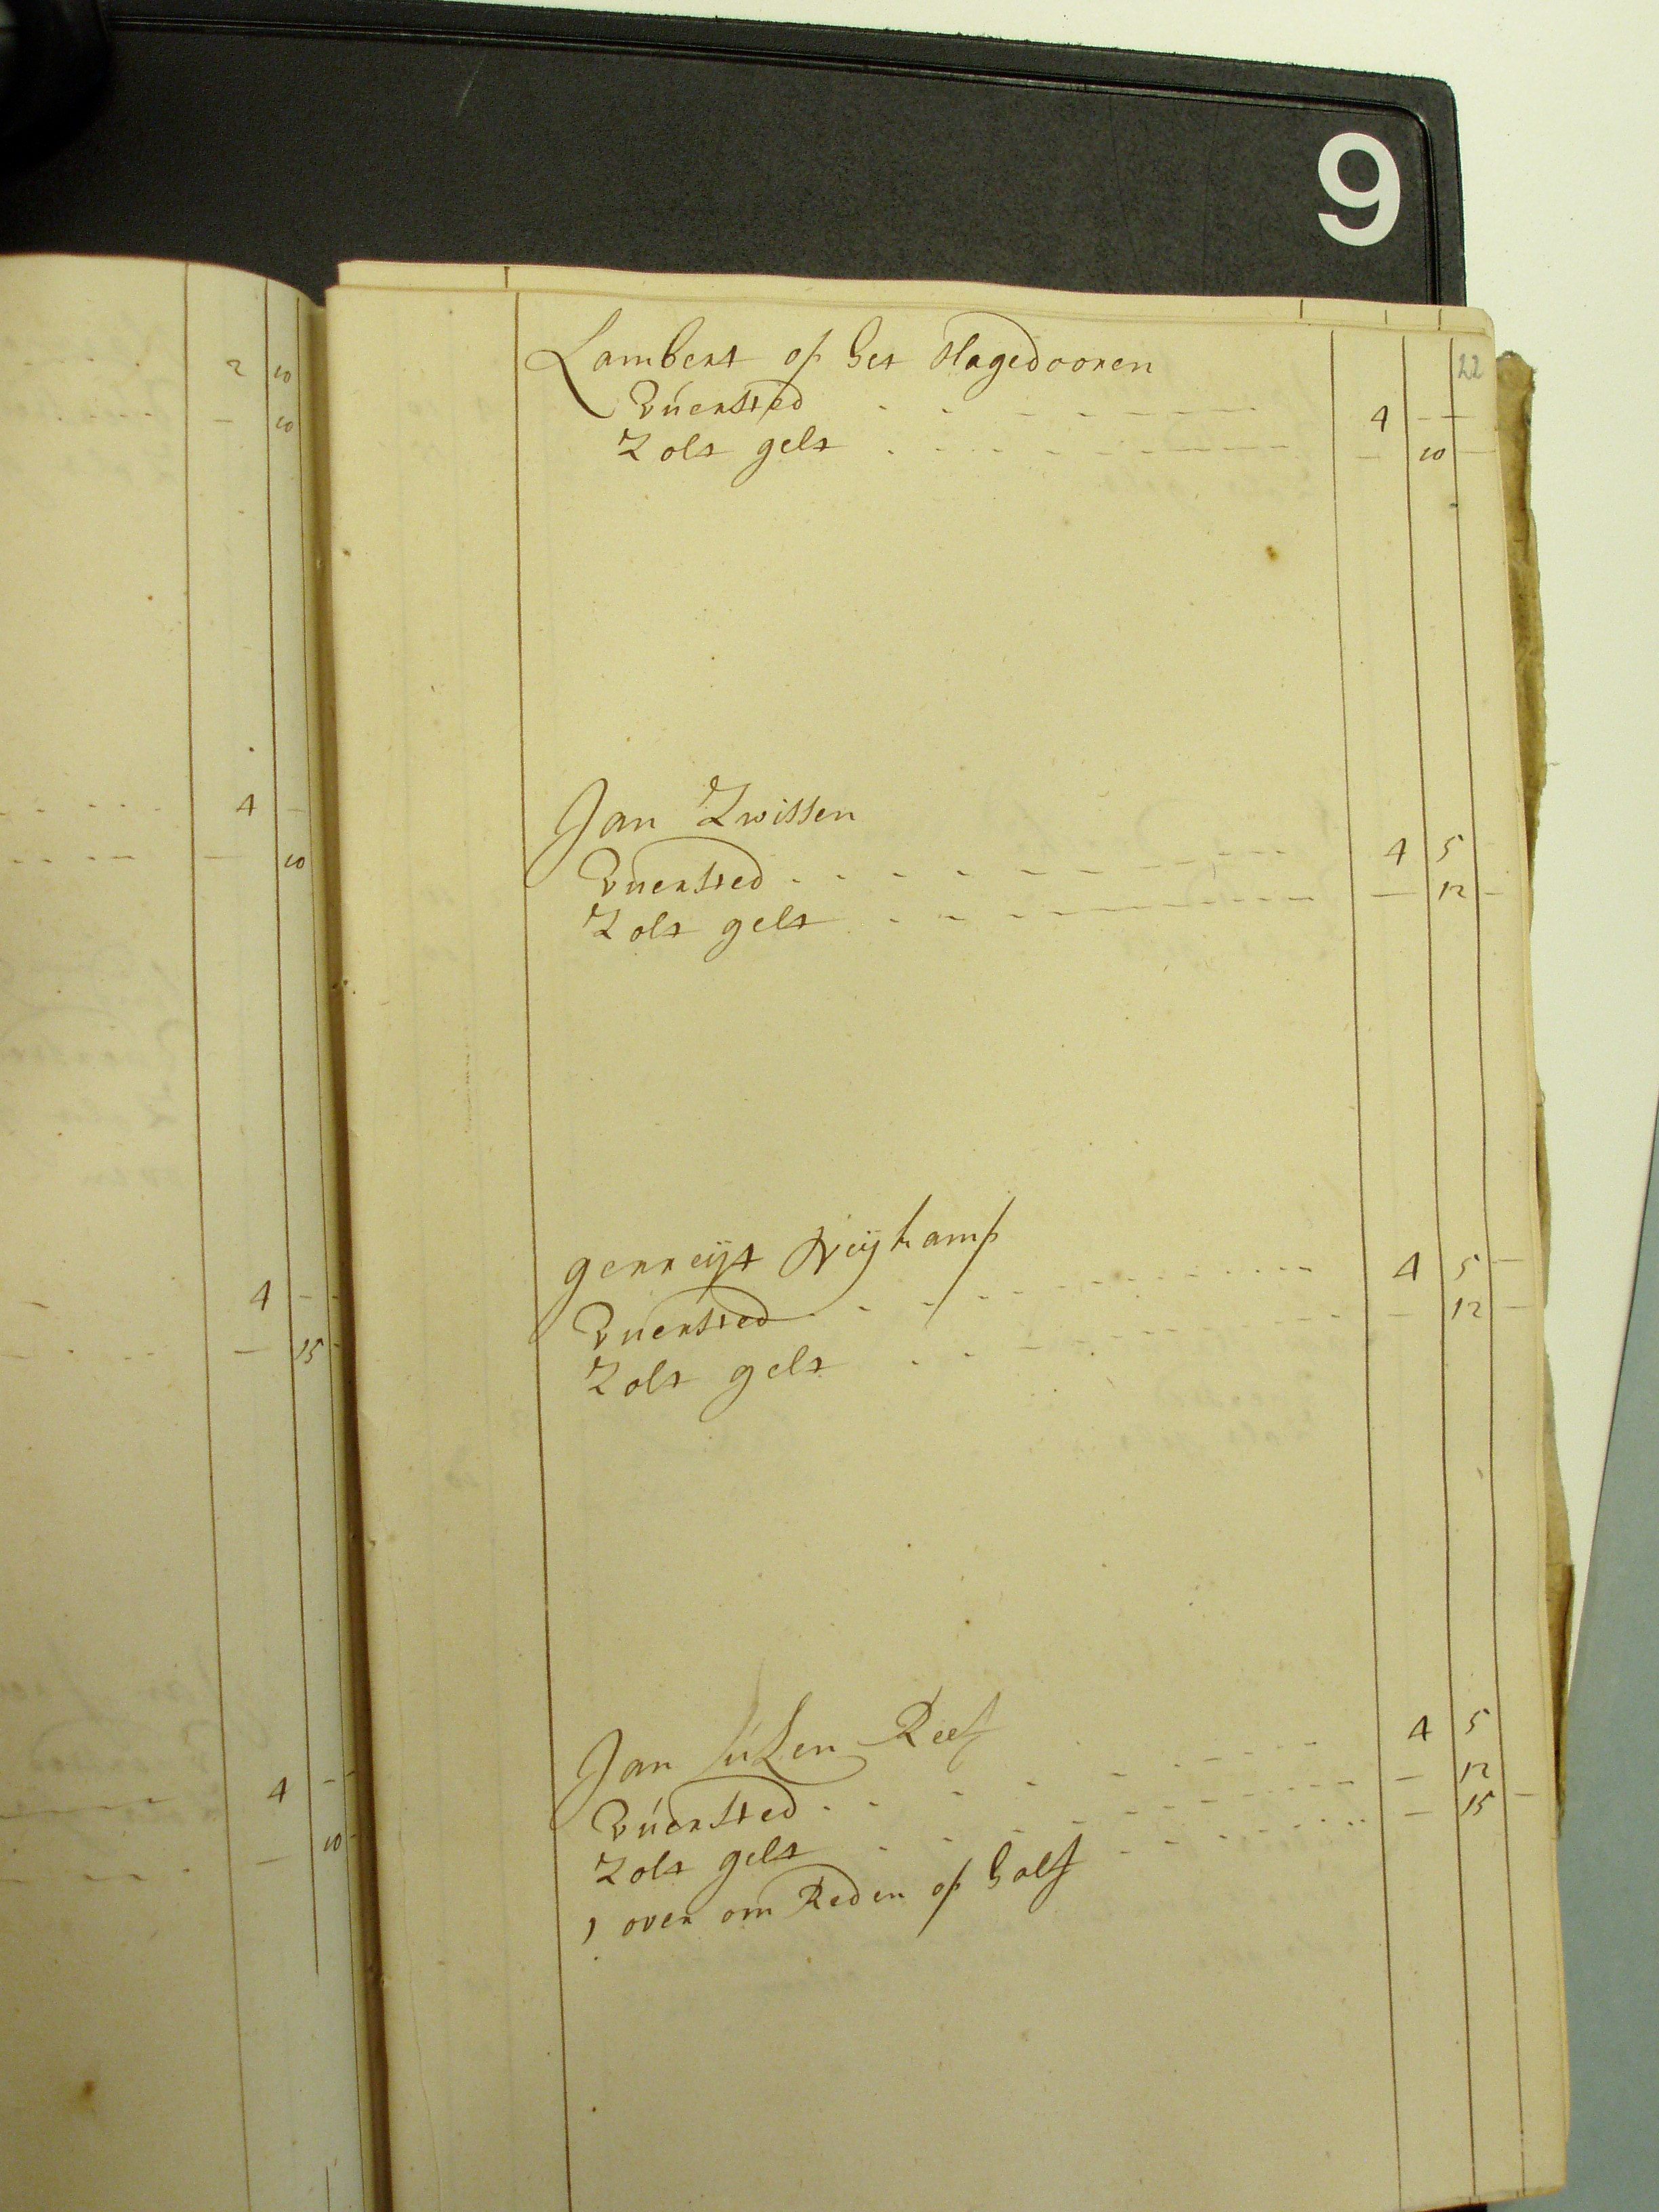 9
22
2 10
- 10
4 -
- 10
4 - -
- 15 -
4 - -
- 10 -
Lambert op het Hagedooren
Vuersted . . . . . . . 4 - -
Zolt gelt . . . . . . . - 10 -
Jan Zwissen
Vuersted . . . . . . . 4 5
Zolt gelt . . . . . . . - 12 -
gerreijt
Vuersted . . . . . . . 4 5 -
Zolt gelt . . . . . . . - 12 -
Jan Reef
Vuersted . . . . . . . 4 5
Zolt gelt . . . . . . . - 12
1 over om Reden op half . . . . - 15 -